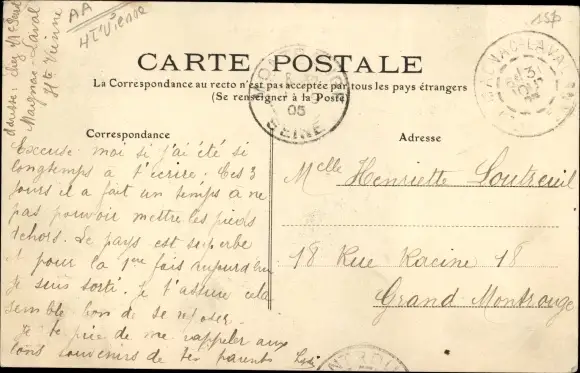 adresse: chez Mr
Magnac-Laval
Hte Vienne
AA
Hte Vienne
155P
CARTE POSTALE
La Correspondance au recto n'est pas acceptée par tous les pays étrangers
(Se renseigner à la Poste)
05
SEINE
MAGNAC-LAVAL
13
Correspondance
Excuse moi si j'ai été si
longtemps à t'écrire; Ces 3
jours il a fait un temps à ne
pas pouvoir mettre les pieds
dehors. Le pays est superbe
et pour la 1ère fois aujourd'hui
je suis sorti. Je t'assure cela
semble bon de se reposer.
Je te prie de me rappeler aux
bons souvenirs de tes parents
Adresse
Melle Henriette Loutreuil
18 Rue Racine 18
Grand Montrouge